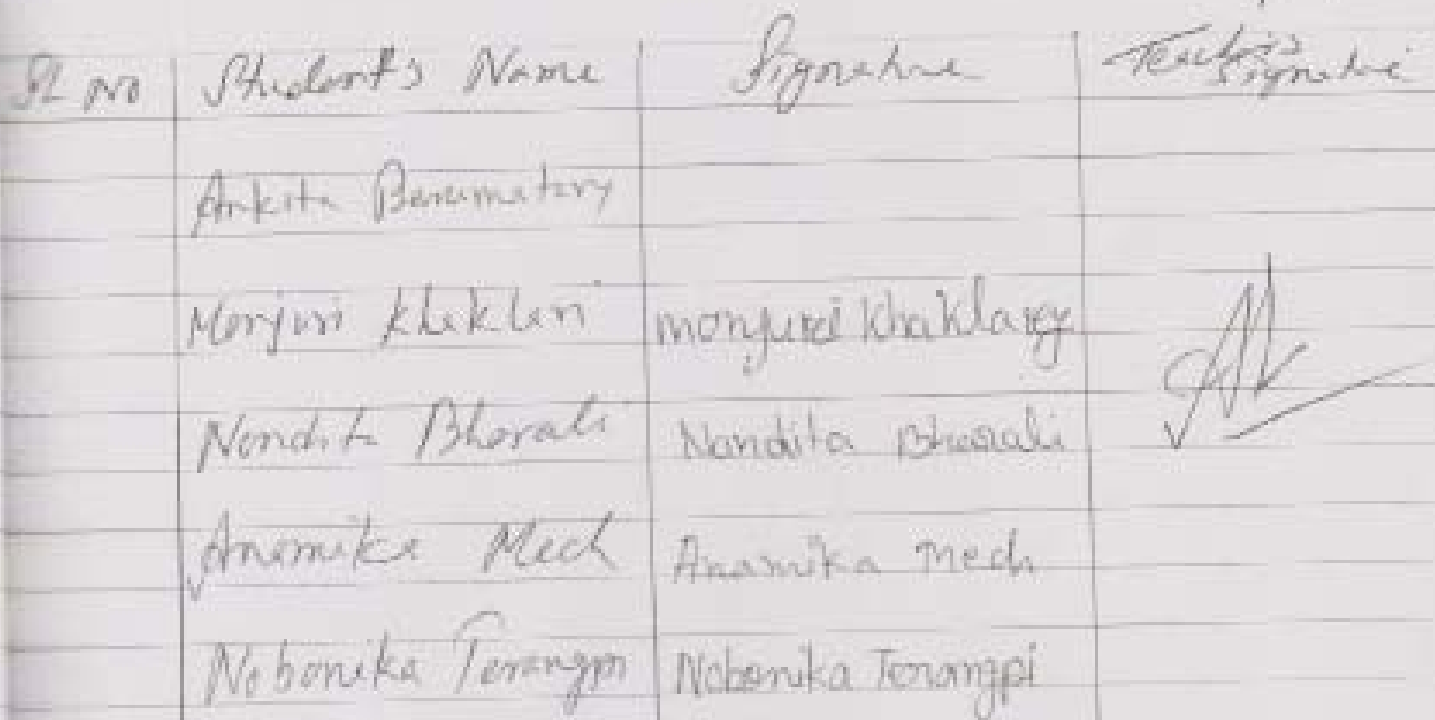 Sl No Student's Name Signature Teacher's Signature
Ankita Barumatary
Monjuri Khaklari monjuri Khaklary
Nondita Bhorali Nandita Bhorali
Anamika Mech Anamika Mech
Nobonika Terangpi Nobonika Terangpi